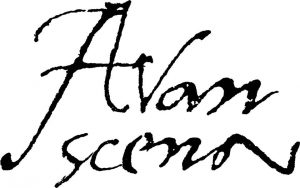 Avam
scena